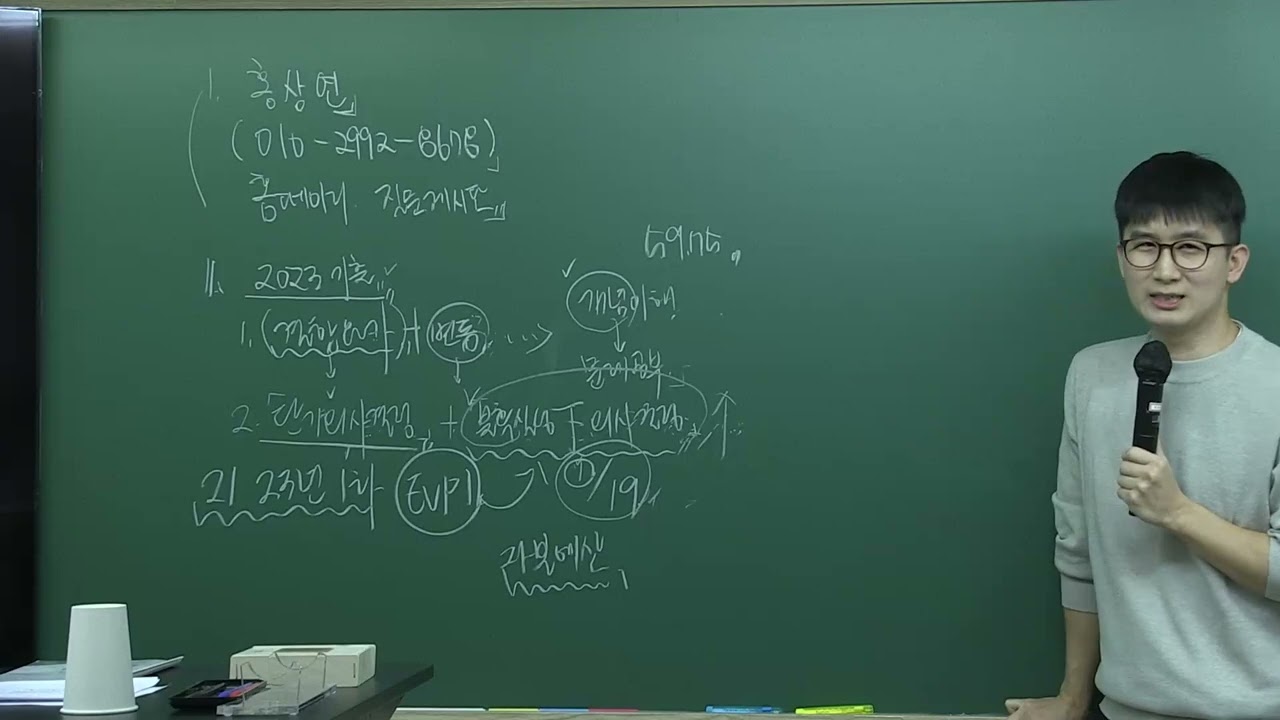 1. 홍상연
(010-2992-8678)
홈페이지 질문게시판
59.75.
11. 2023 기출
1. (결합원가)+변동 ...> 개념이해
문제공부
2. 단기의사결정 + 불확실성下 의사결정 ↑
21 23년 1차 EVPI ①/19
자본예산